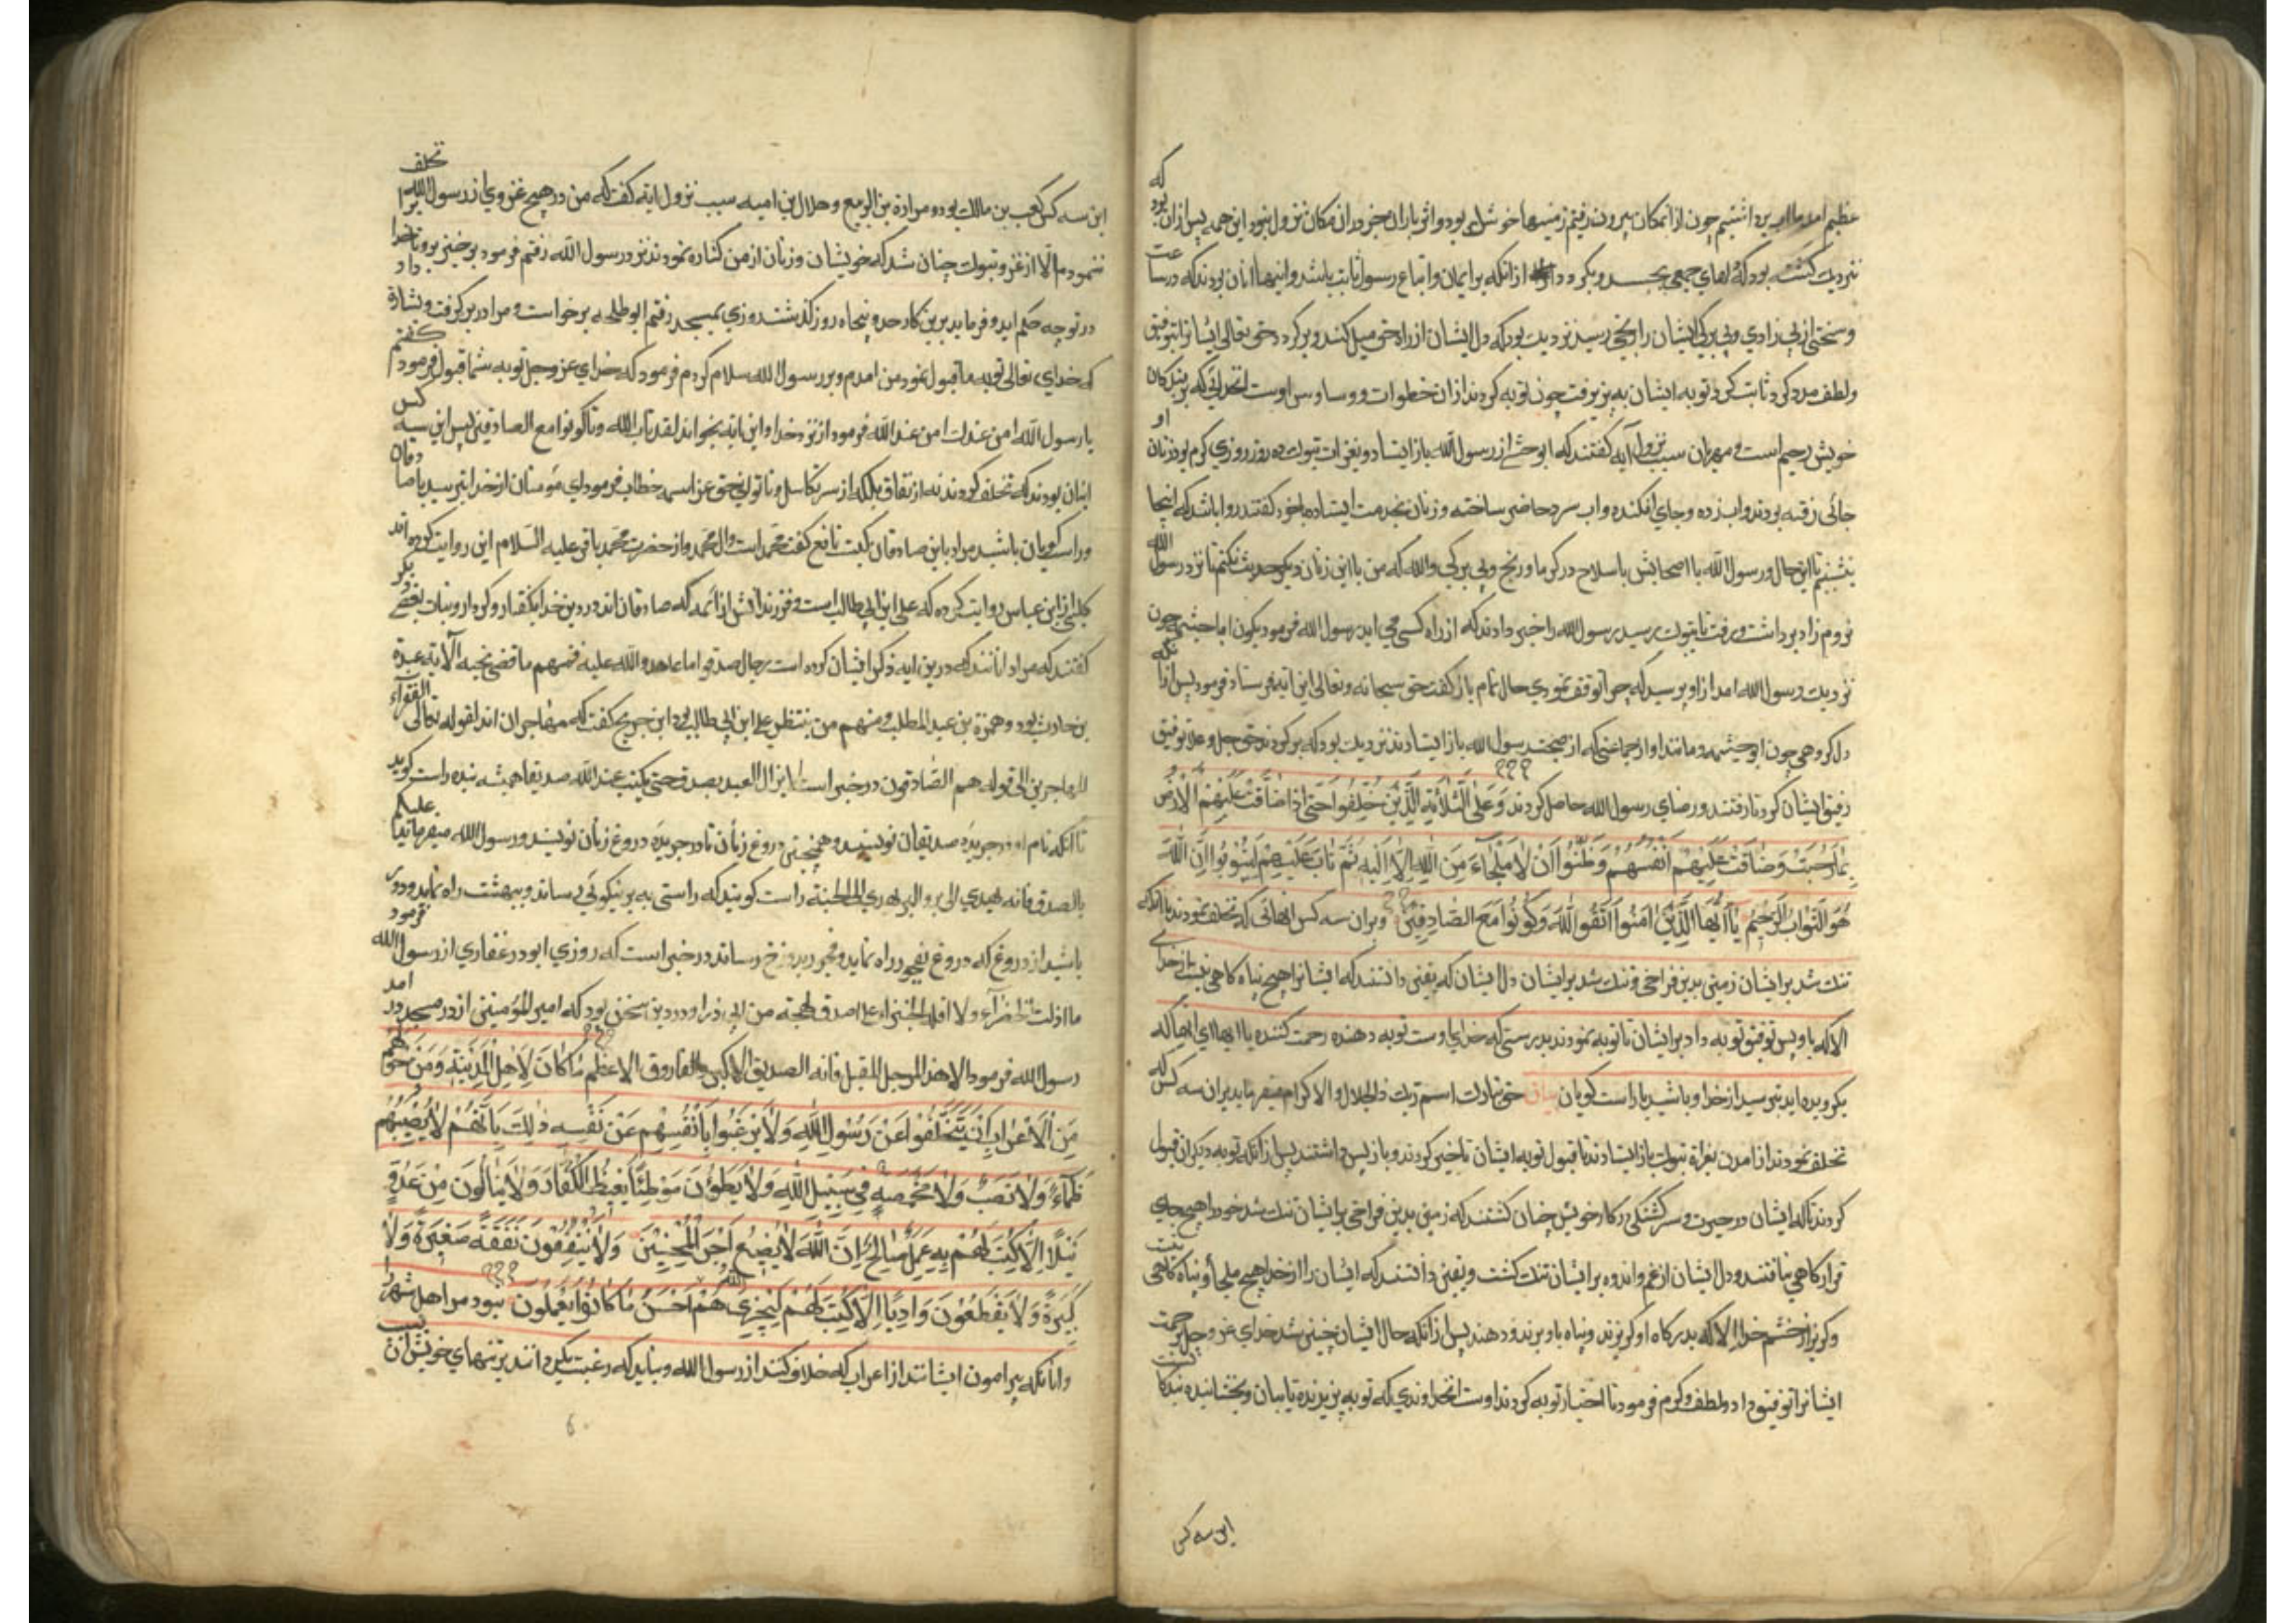 عظیم امد ما اب برداشتیم چون از انمکان بیرون رفتیم زمینها خوشک بود و اثر باران بجز در ان مکان نزول نبود این همه پس از ان بود که
نزدیک کشته بود که دلهای جمعی بجسد و بکردد از انکه بر ایمان و اتباع رسول ثابت باشد و اینها انان بودند که در ساعت
و سختی از بی زادی و بی برکی ایشان را رنجی رسید نزدیک بود که دل ایشان از راه حق میل کند و برکردد حق تعالی ایشانرا بتوفیق
و لطف مدد کرد ثابت کرد و توبه ایشان به پزیرفت چون توبه کردند از ان خطوات و وساوس اوست انخدائی که بر بندکان
خویش رحیم است و مهربان سبب نزول آیه کفتند که ابو حثمه از رسول الله باز ایستاد و بغزات تبوک ده روز روزی کرم بود زنان او
جائی رفته بودند و اب زده و جای افکنده و اب سرد حاضر ساخته و زنان بخدمت ایستاده با خود کفتند روا باشد که اینجا
بنشینم با این حال و رسول الله با اصحابش با سلاح در کرما و رنج و بی برکی والله که من با این زنان دیکر حدیث نکنم تا نزد رسول الله
نروم زاد برداشت و برفت تا بتبوک رسید رسول الله را خبر دادند که از راه کسی می اید رسول الله فرمود بکون ابا حثیمه چون
نزدیک رسول الله امد از او پرسید که چرا توقف نمودی حال تمام باز کفت حق سبحانه و تعالی این ایه فرستاد فرمود پس از انکه
دل کروهی چون ابو حثیمه و مانند او از جماعتی که از صحبت رسول الله باز ایستادند نزدیک بود که برکردند حق جل و علا توفیق
رفیق ایشان کرد تا رفتند و رضای رسول الله حاصل کردند وَعَلَی الثَّلٰثَةِ الَّذِیْنَ خُلِّفُوا حَتّٰی اِذَا ضَاقَتْ عَلَیْهِمُ الْاَرْضُ
بِمَا رَحُبَتْ وَضَاقَتْ عَلَیْهِمْ اَنْفُسُهُمْ وَظَنُّوا اَنْ لَا مَلْجَاءَ مِنَ اللّٰهِ اِلَّا اِلَیْهِ ثُمَّ تَابَ عَلَیْهِمْ لِیَتُوْبُوا اِنَّ اللّٰهَ
هُوَ التَّوَّابُ الرَّحِیْمُ یَا اَیُّهَا الَّذِیْنَ اٰمَنُوا اتَّقُوا اللّٰهَ وَکُوْنُوا مَعَ الصَّادِقِیْنَ و بران سه کس انهائی که تخلف نمودند تا انکه
تنک شد بر ایشان زمین بدین فراخی و تنک شد بر ایشان دل ایشان که یقین دانستند که ایشانرا هیچ پناه کاهی نیست از خدای
الا که باو پس توفیق توبه داد بر ایشان تا توبه نمودند بدرستی که خدای اوست توبه دهنده رحمت کننده یا ایها ای انها که
بکرویده اید بترسید از خدا و باشید با راست کویان حق تبارک اسم ربک ذالجلال والاکرام میفرماید بران سه کس که
تخلف نمودند از امدن بغزاة تبوک باز ایستادند تا قبول توبه ایشان تاخیر کردند و باز پس داشتند پس از انکه توبه دیکران قبول
کردند تا که ایشان در حیرت و سرکشتکی در کار خویش چنان کشتند که زمین بدین فراخی بر ایشان تنک شد خود را هیچ جای
قرار کاهی نیافتند و دل ایشان از غم و اندوه بر ایشان تنک کشت و یقین دانستند که ایشان را از خدا هیچ ملجأ و پناه کاهی نیست
و کریز از خشم خدا الا که بدرکاه او کریزند و پناه باو برند و دهند پس از انکه حال ایشان چنین شد خدای عز و جل برحمت
ایشانرا توفیق داد و لطف و کرم فرمود تا اختیار توبه کردند اوست انخداوندی که توبه پزیرنده تایبان و بخشاینده بندکا نست
این سه کس
این سه کس کعب بن مالک بود و مرارة بن الربیع و هلال بن امیه سبب نزول ایه کفت که من در هیچ غزوی از رسول الله تخلف
ننمودم الا از غزو تبوک چنان شد که خویشان و زنان از من کناره نمودند نزد رسول الله رفتم فرمود برخیز برو تا خدا
در تو چه حکم اید و فرماید برین کار حد و پنجاه روز کذشت روزی بمسجد رفتم ابو طلحه برخواست و مرا در بر کرفت و بشارة داد
که خدای تعالی توبه ما قبول نمود من امدم و بر رسول الله سلام کردم فرمود که خدای عز و جل توبه شما قبول فرمود کفتم
یا رسول الله امن عندک امن عند الله فرمود از نزد خدا و این ایه بخواند لقد تاب الله و تا کونوا مع الصادقین پس این سه کس
اینان بودند که تخلف کردند نه از نفاق بلکه از سر تکاسل و ناتوانی حق عز اسمه خطاب فرمود ای مؤمنان از خدا بترسید با صادقان
و راست کویان باشید مراد باین صادقان کیست نافع کفت محمد است و ال محمد و از حضرت محمد باقر علیه السلام این روایت کرده اند
کلبی از ابن عباس روایت کرده که علی ابن ابی طالب است و فرزندانش از ائمه که صادقان اند در دین خدا بکفتار و کردار و نیات بعضی دیکر
کفتند که مراد انانند که درین ایه ذکر ایشان کرده است رجال صدقوا ما عاهدوا الله علیه فمنهم من قضی نحبه الآیة عبیدة
بن حارث بود و حمزة بن عبد المطلب و منهم من ینتظر علی ابن ابی طالب بود ابن جریج کفت که مهاجران اند لقوله تعالی للفقرآء
المهاجرین الی قوله هم الصادقون در خبر است لا یزال العبد یصدق حتی یکتب عند الله صدیقا همیشه بنده راست کوید
تا انکه نام او در جریده صدیقان نویسند و همچنین دروغ زنان تا در جریده دروغ زنان نویسند و رسول الله میفرماید علیکم
بالصدق فانه یهدی الی البر و البر یهدی الی الجنة راست کویید که راستی به بر نیکوئی رساند و ببهشت راه نماید و دور
باشید از دروغ که دروغ بفجور راه نماید و فجور بدوزخ رساند در خبر است که روزی ابو ذر غفاری از رسول الله فرمود
ما اظلت الخضرآء ولا اقلت الغبراء علی اصدق لهجة من ابی ذر او در دین سخن بود که امیر المؤمنین از در مسجد در امد
رسول الله فرمود الا هذا الرجل المقبل فانه الصدیق الاکبر و الفاروق الاعظم مَا کَانَ لِاَهْلِ الْمَدِیْنَةِ وَمَنْ حَوْلَهُمْ
مِنَ الْاَعْرَابِ اَنْ یَتَخَلَّفُوا عَنْ رَسُوْلِ اللّٰهِ وَلَا یَرْغَبُوا بِاَنْفُسِهِمْ عَنْ نَفْسِهٖ ذٰلِکَ بِاَنَّهُمْ لَا یُصِیْبُهُمْ
ظَمَاءٌ وَلَا نَصَبٌ وَلَا مَخْمَصَةٌ فِیْ سَبِیْلِ اللّٰهِ وَلَا یَطَؤُنَ مَوْطِئًا یَغِیْظُ الْکُفَّارَ وَلَا یَنَالُوْنَ مِنْ عَدُوٍّ
نَیْلًا اِلَّا کُتِبَ لَهُمْ بِهٖ عَمَلٌ صَالِحٌ اِنَّ اللّٰهَ لَا یُضِیْعُ اَجْرَ الْمُحْسِنِیْنَ وَلَا یُنْفِقُوْنَ نَفَقَةً صَغِیْرَةً وَلَا
کَبِیْرَةً وَلَا یَقْطَعُوْنَ وَادِیًا اِلَّا کُتِبَ لَهُمْ لِیَجْزِیَهُمُ اللّٰهُ اَحْسَنَ مَا کَانُوْا یَعْمَلُوْنَ نبود مر اهل شهر را
و انانکه پیرامون ایشانند از اعراب که خلاف کنند از رسول الله و نباید که رغبت بکردانند بر تنهای خویش از